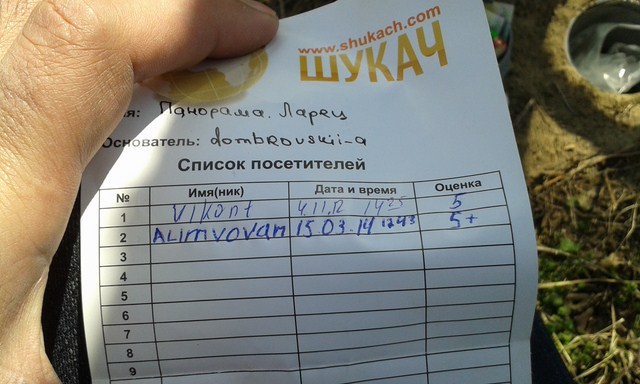 www.shukach.com
ШУКАЧ
ия: Панорама. Ларец
Основатель: dombrovskii-a
Список посетителей
№ Имя(ник) Дата и время Оценка
1 Vikont 4.11.12 1425 5
2 ALIMVOVAN 15.03.14 1243 5+
3
4
5
6
7
8
9